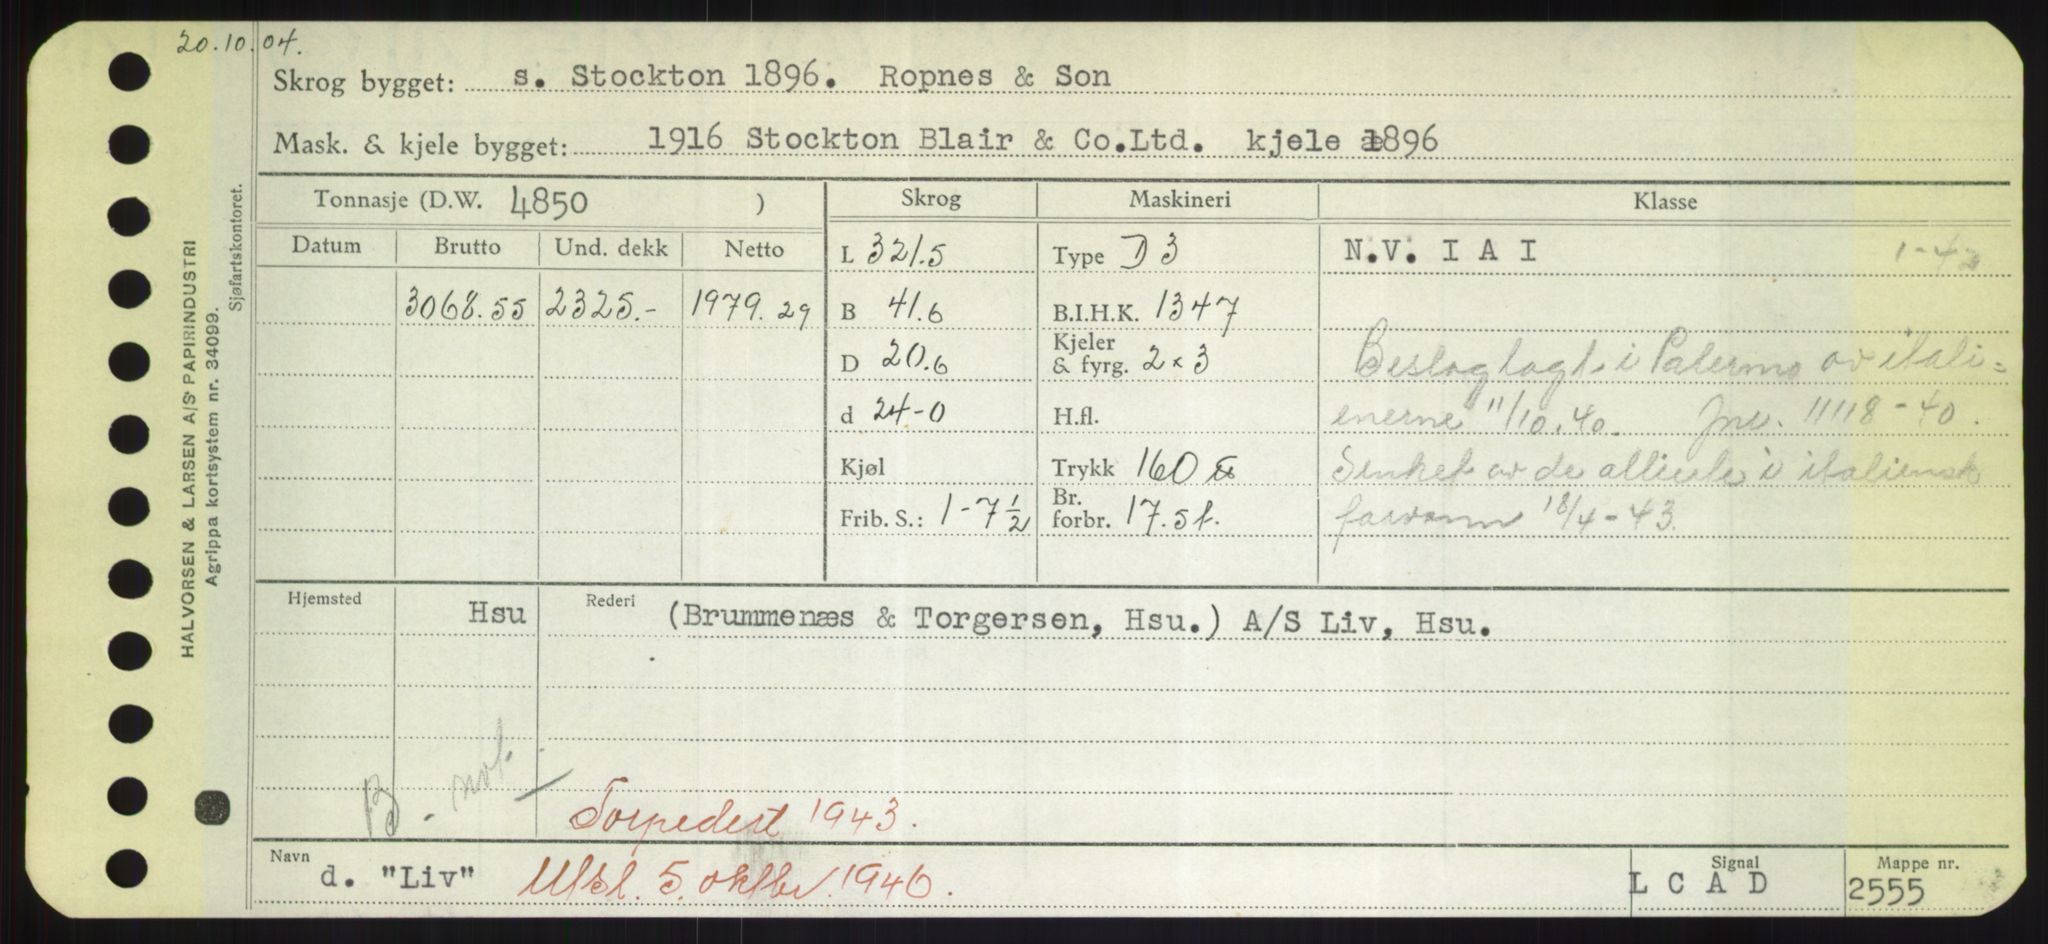 20.10.04.
Skrog bygget: s. Stockton 1896. Ropnes & Son
Mask. & kjele bygget: 1916 Stockton Blair & Co.Ltd. kjele 1896
HALVORSEN & LARSEN A/S PAPIRINDUSTRI
Agrippa kortsystem nr. 34099.
Sjøfartskontoret.
Tonnasje (D.W. 4850 ) Skrog Maskineri Klasse
Datum Brutto Und. dekk Netto L 321.5 Type D 3 N.V. I A I 1-42
3068.55 2325.- 1979.29 B 41.6 B.I.H.K. 1347
D 20.6 Kjeler & fyrg. 2 x 3 Beslaglagt i Palermo av itali=
d 24-0 H.fl. enerne 11/10.40. Jnr. 11118-40.
Kjøl Trykk 160 lb Senket av de allierte i italiensk
Frib. S.: 1-7½ Br. forbr. 17.5t. farvann 18/4-43.
Hjemsted Hsu Rederi (Brummenæs & Torgersen, Hsu.) A/S Liv, Hsu.
B. not.
Torpedert 1943.
Navn d. "Liv" Utsl. 5. oktbr. 1946. Signal L C A D Mappe nr. 2555